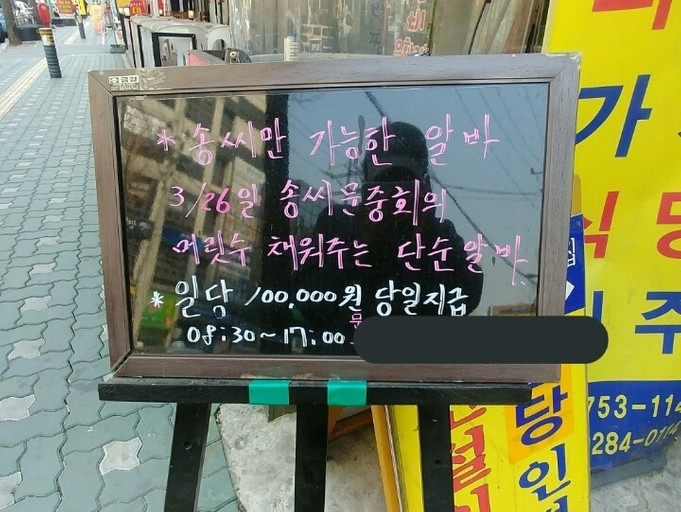 * 송씨만 가능한 알바
3/26일 송씨문중회의
머릿수 채워주는 단순알바.
* 일당 100,000원 당일지급
08:30~17:00
문
가
식당
주
753-114
284-0114
당
인